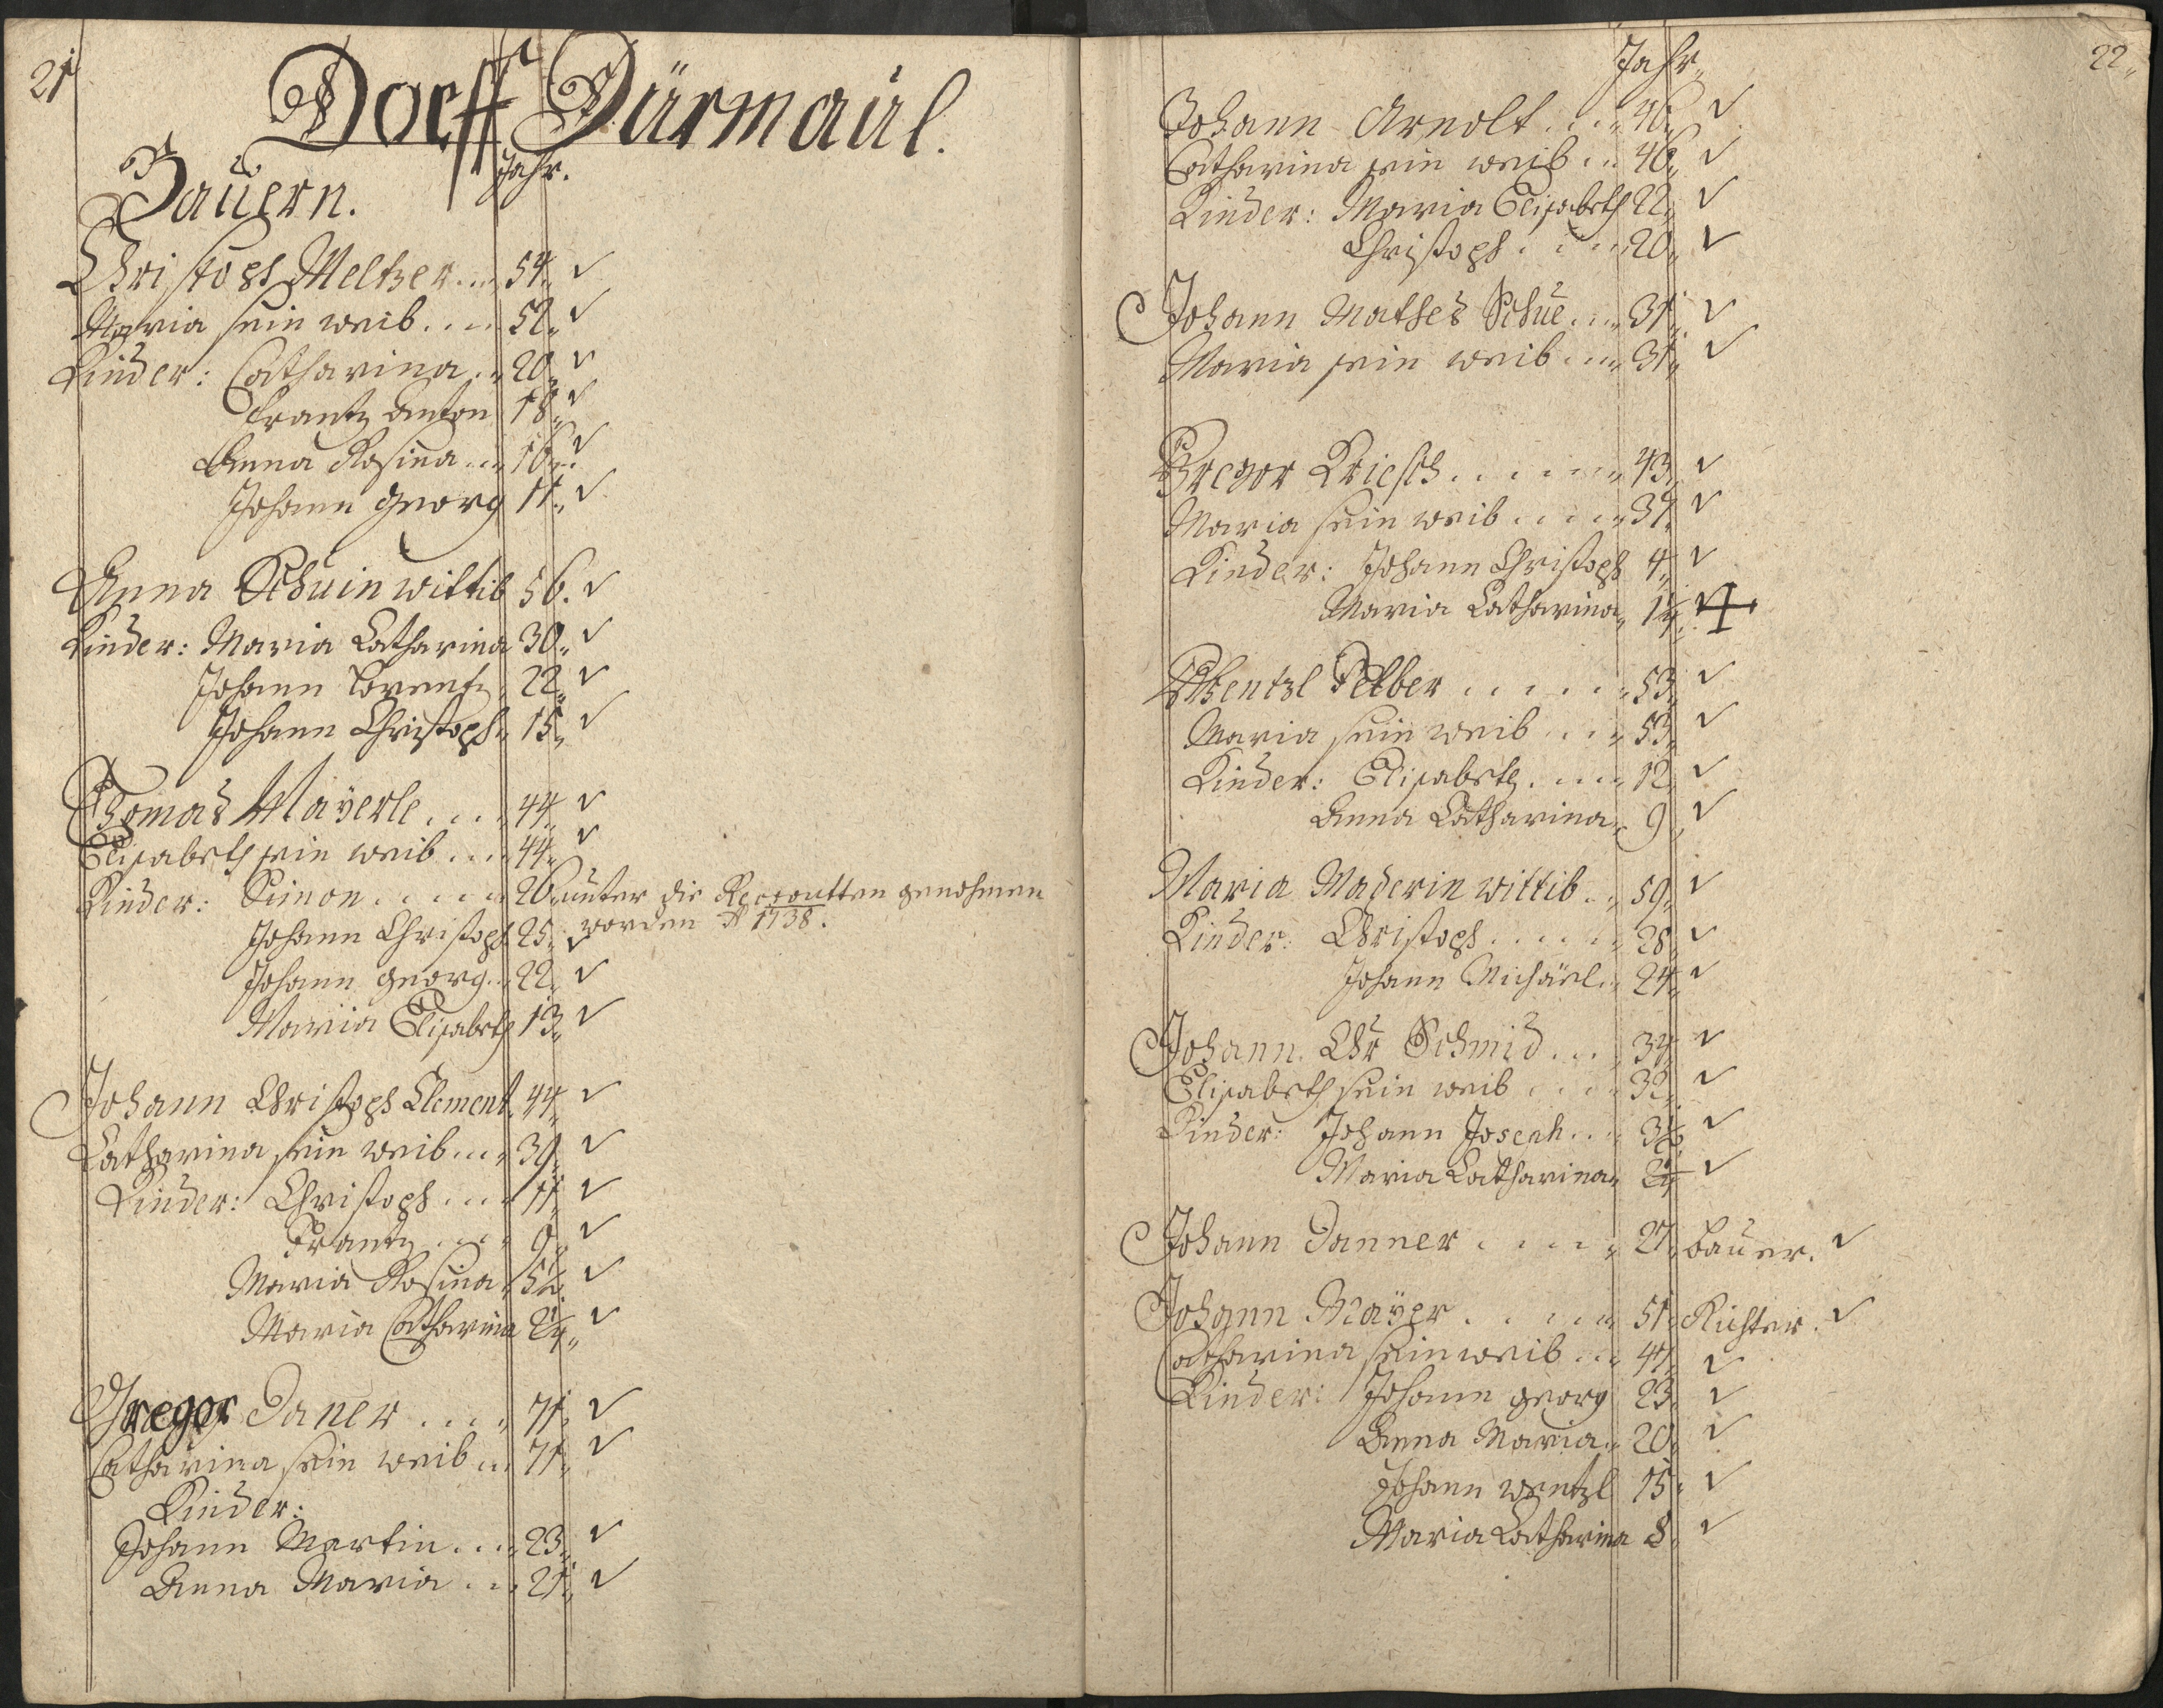 21
Dorff Dürmaul.
Bauern. Jahr.
Christoph Meltzer.... 54. ✓
Maria sein weib.... 52. ✓
Kinder: Catharina.. 20. ✓
Frantz Anton 18. ✓
Anna Rosina... 16. ✓
Johann Georg 11. ✓
Anna Schuin wittib 56. ✓
Kinder: Maria Catharina 30. ✓
Johann Lorentz. 22. ✓
Johann Christoph. 15. ✓
Thomas Mayerle.... 44. ✓
Elisabeth sein weib.... 44. ✓
Kinder: Simon..... 26. unter die Recroutten genohmen
worden Aº 1738.
Johann Christoph 25. ✓
Johann Georg... 22. ✓
Maria Elisabeth 13. ✓
Johann Christoph Clement. 44. ✓
Catharina sein weib.... 39. ✓
Kinder: Christoph.... 11. ✓
Frantz.... 9. ✓
Maria Rosina. 5½. ✓
Maria Catharina 2¼. ✓
Gregor Daner.... 71. ✓
Catharina sein weib... 71. ✓
Kinder:
Johann Martin.... 23. ✓
Anna Maria.... 21. ✓
22.
Jahr.
Johann Arnolt.... 46. ✓
Catharina sein weib... 46. ✓
Kinder: Maria Elisabeth 22. ✓
Christoph.... 20. ✓
Johann Mathes Schue.... 31. ✓
Maria sein weib.... 31. ✓
Gregor Kriesch...... 43. ✓
Maria sein weib..... 34. ✓
Kinder: Johann Christoph 4. ✓
Maria Catharina. 1¼. ✓ +
Wentzl Pelber...... 53. ✓
Maria sein weib.... 53. ✓
Kinder: Elisabeth..... 12. ✓
Anna Catharina. 9. ✓
Maria Maderin wittib.. 59. ✓
Kinder: Christoph...... 28. ✓
Johann Michäel.. 24. ✓
Johann Chr Schmid.... 34. ✓
Elisabeth sein weib.... 32. ✓
Kinder: Johann Joseph.... 3½ ✓
Maria Catharina. 2¼ ✓
Johann Danner..... 27. Bauer. ✓
Johann Mayer..... 51. Richter. ✓
Catharina sein weib... 47. ✓
Kinder: Johann Georg 23. ✓
Anna Maria.. 20. ✓
Johann Wentzl 15. ✓
Maria Catharina 8. ✓